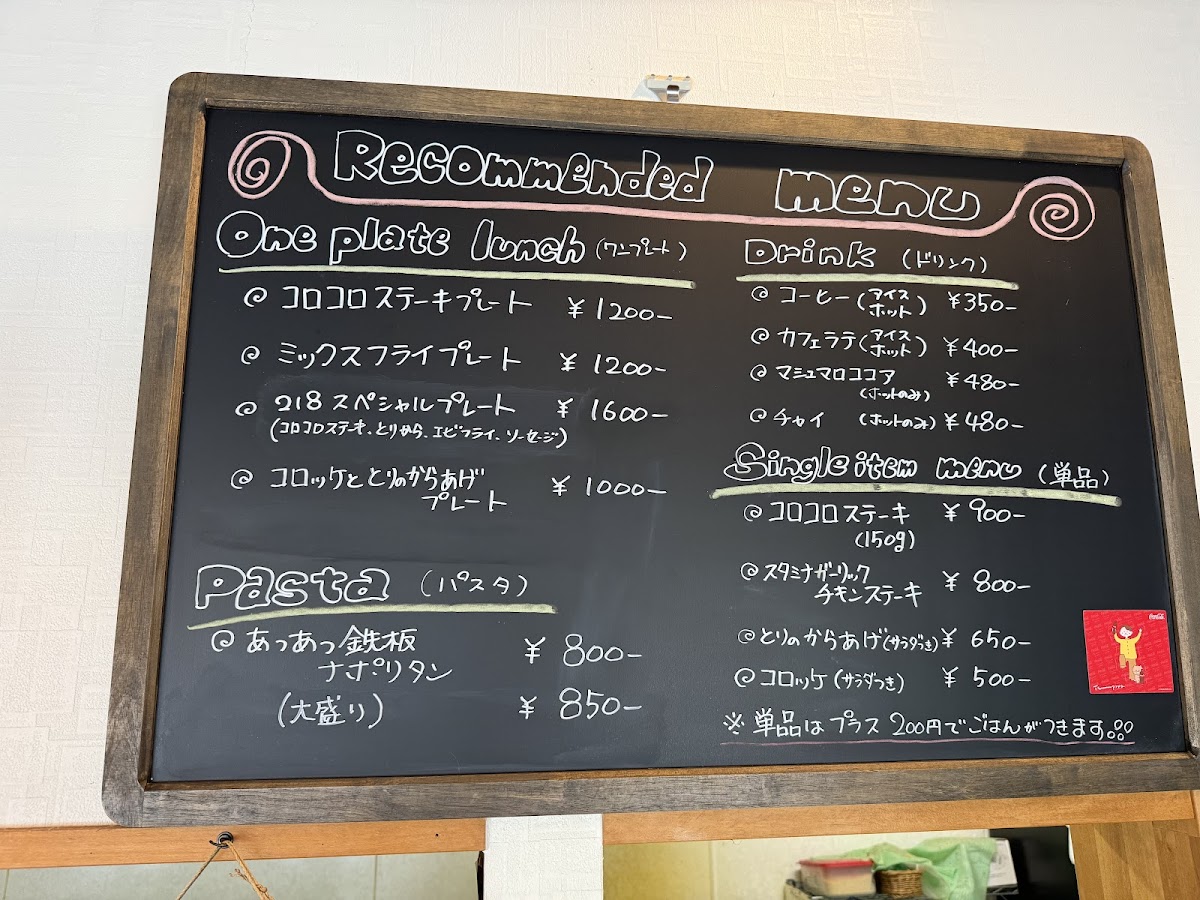 Recommended menu
One plate lunch (ワンプレート)
コロコロステーキプレート ¥1200-
ミックスフライプレート ¥1200-
218スペシャルプレート ¥1600-
(コロコロステーキ、とりから、エビフライ、ソーセージ)
コロッケととりのからあげ
プレート ¥1000-
Pasta (パスタ)
あつあつ鉄板
ナポリタン ¥800-
(大盛り) ¥850-
Drink (ドリンク)
コーヒー(アイス ホット) ¥350-
カフェラテ(アイス ホット) ¥400-
マシュマロココア ¥480-
(ホットのみ)
チャイ (ホットのみ) ¥480-
Single item menu (単品)
コロコロステーキ ¥900-
(150g)
スタミナガーリック
チキンステーキ ¥800-
とりのからあげ(サラダつき) ¥650-
コロッケ(サラダつき) ¥500-
※単品はプラス200円でごはんがつきます。
Coca-Cola